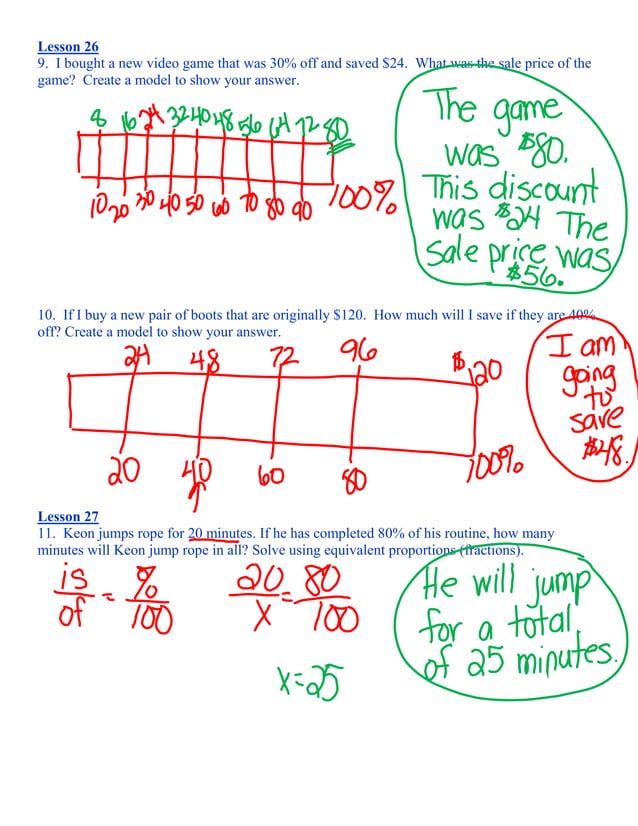 Lesson 26
9. I bought a new video game that was 30% off and saved $24. What was the sale price of the
game? Create a model to show your answer.
8 16 24 32 40 48 56 64 72 80
10 20 30 40 50 60 70 80 90 100%
The game
was $80.
This discount
was $24 The
sale price was
$56.
10. If I buy a new pair of boots that are originally $120. How much will I save if they are 40%
off? Create a model to show your answer.
24 48 72 96 $120
20 40 60 80 100%
I am
going
to
save
$48.
Lesson 27
11. Keon jumps rope for 20 minutes. If he has completed 80% of his routine, how many
minutes will Keon jump rope in all? Solve using equivalent proportions (fractions).
is % 20 80
of = 100 X = 100
x=25
He will jump
for a total
of 25 minutes.